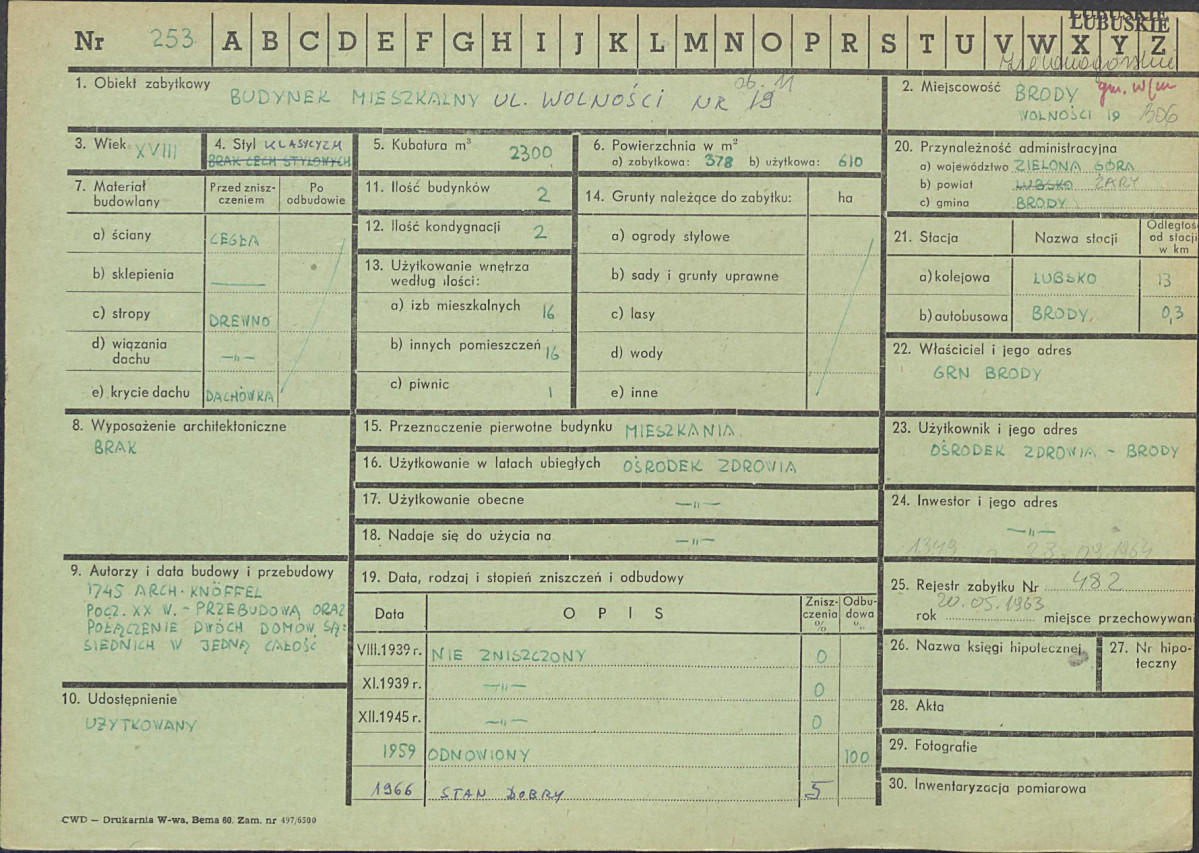 LUBUSKIE
LUBUSKIE
Nr 253 A B C D E F G H I J K L M N O P R S T U V W X Y Z
Zielonogórskie
1. Obiekt zabytkowy
ob. 11
BUDYNEK MIESZKALNY UL. WOLNOŚCI NR 19
2. Miejscowość BRODY gm. w/m
WOLNOŚCI 19 306
3. Wiek XVIII
4. Styl KLASYCYZM
BRAK CECH STYLOWYCH
5. Kubatura m³ 2300
6. Powierzchnia w m²
a) zabytkowa: 378 b) użytkowa: 610
20. Przynależność administracyjna
a) województwo ZIELONA GÓRA
b) powiat LUBSKO ŻARY
c) gmina BRODY
7. Materiał budowlany
Przed znisz-
czeniem
Po
odbudowie
a) ściany CEGŁA
b) sklepienia —
c) stropy DREWNO
d) wiązania
dachu —„—
e) krycie dachu DACHÓWKA
11. Ilość budynków 2
12. Ilość kondygnacji 2
13. Użytkowanie wnętrza
według ilości:
a) izb mieszkalnych 16
b) innych pomieszczeń 16
c) piwnic 1
14. Grunty należące do zabytku: ha
a) ogrody stylowe
b) sady i grunty uprawne
c) lasy
d) wody
e) inne
21. Stacja Nazwa stacji
Odległość
od stacji
w km
a) kolejowa LUBSKO 13
b) autobusowa BRODY 0,3
22. Właściciel i jego adres
GRN BRODY
8. Wyposażenie architektoniczne
BRAK
15. Przeznaczenie pierwotne budynku MIESZKANIA
16. Użytkowanie w latach ubiegłych OŚRODEK ZDROWIA
17. Użytkowanie obecne —„—
18. Nadaje się do użycia na —„—
23. Użytkownik i jego adres
OŚRODEK ZDROWIA - BRODY
24. Inwestor i jego adres
—„—
1349 23.09.1964
9. Autorzy i data budowy i przebudowy
1745 ARCH. KNÖFFEL
POCZ. XX W. - PRZEBUDOWA ORAZ
POŁĄCZENIE DWÓCH DOMÓW SĄ-
SIEDNICH W JEDNĄ CAŁOŚĆ
10. Udostępnienie
UŻYTKOWANY
19. Data, rodzaj i stopień zniszczeń i odbudowy
Data OPIS
Znisz-
czenia
%
Odbu-
dowa
%
VIII.1939 r. NIE ZNISZCZONY 0
XI.1939 r. —„— 0
XII.1945 r. —„— 0
1959 ODNOWIONY 100
1966 STAN DOBRY 5
25. Rejestr zabytku Nr 482
20.05.1963
rok miejsce przechowywani
26. Nazwa księgi hipotecznej
27. Nr hipo-
teczny
28. Akta
29. Fotografie
30. Inwentaryzacja pomiarowa
CWD — Drukarnia W-wa, Bema 60. Zam. nr 497/6500